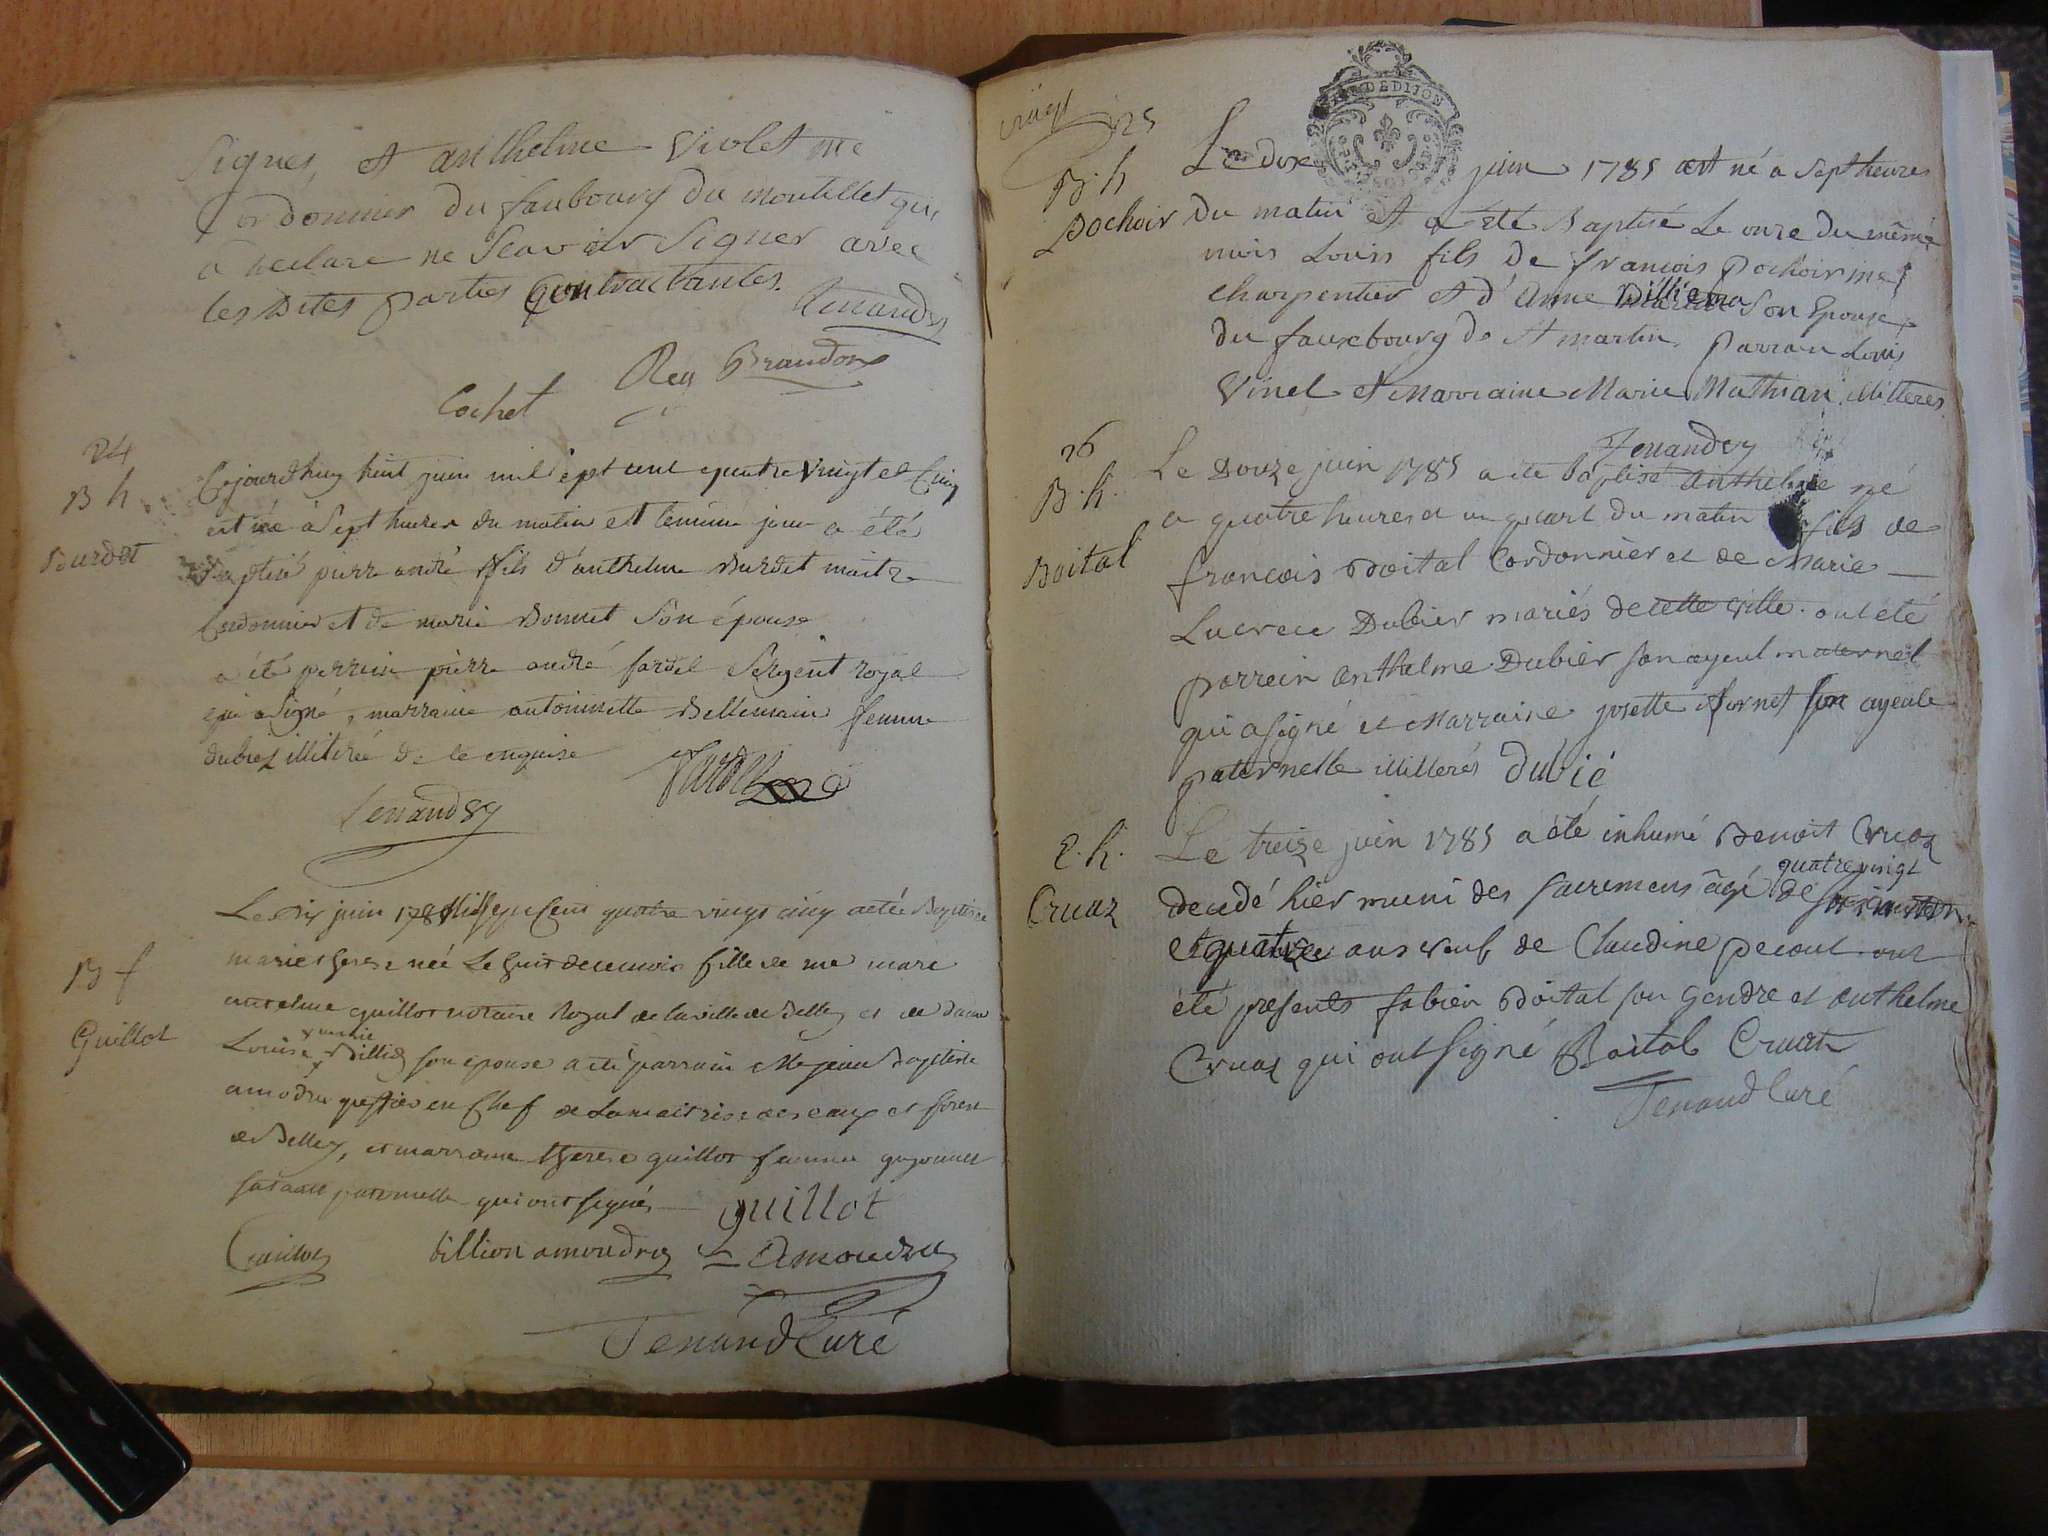 Signes, et anthelme Violet me
Cordonnier du faubourg du moutillet qui
a declaré ne scavoir signer avec
les Dites parties Contractantes.
Tenandcy
Rey Brandon
Cochet
24
B h
Burdet
Cejourdhuy huit juin mil sept cent quatre vingt et Cinq
est née à Sept heures du matin et le même jour a été
Baptisé pierre andré fils d'anthelme Burdet maitre
Cordonnier et de marie Bonnet son épouse
a été parrein pierre andré fardel Sergent royal
qui a signé, marraine antoinette Bellemain femme
dubiez illitérée de le enquise
Tenandcy
B f
Guillot
Le dix juin 178 Mil sept Cent quatre vingt cinq a été Baptisée
marie therese née Le huit de ce mois fille de me marc
anthelme guillot notaire Royal de la ville de Belley et de dame
Louise marie Billion son epouse a été parrain Me jean Baptiste
amodru greffier en Chef de La maitrise des eaux et forest
de Belley, et marraine therese guillot femme
sa tante paternelle qui ont signés
guillot
billion amoudru Amoudru
Tenand Curé
vingt
25
B. h
Pochoir
GEN. DE DIJON
Le dix juin 1785 est né a Sept heures
du matin et a été Baptisé Le onze du même
mois Louis fils de françois pochoir me
charpentier et d'Anne Billiema son Epouse
du fauxbourg de St martin, parrain Louis
Vinel et Marraine Marie Mathian illitteres
Tenandcy
26
B. h.
Boital
Le Douze juin 1785 a été baptisé Anthelme né
a quatre heures et un quart du matin fils de
françois Boital Cordonnier et de Marie
Lucrece Dubier mariés de cette ville. ont été
parrein Anthelme Dubier son ayeul maternel
qui a signé et Marraine josette fornet son ayeule
paternelle illitterés Dubié
E. h.
Cruaz
Le treize juin 1785 a été inhumé Benoit Cruaz
decedé hier muni des sacremens âgé de quatre vingt
et quatre ans veuf de Claudine pecout. ont
été presents fabien Boital son Gendre et anthelme
Cruaz qui ont signé Boital Cruat
Tenand Curé